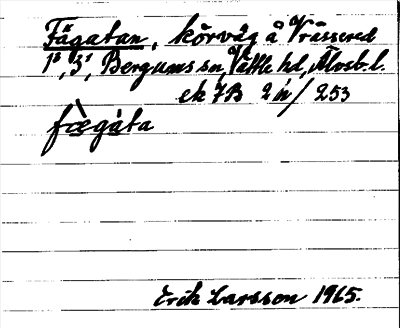 Fägatan, körväg å Vrässered
1², 3¹, Bergums sn, Vättle hd, Älvsb. l.
ek 7B 2 h/253
fǽgàta
Erik Larsson 1965.